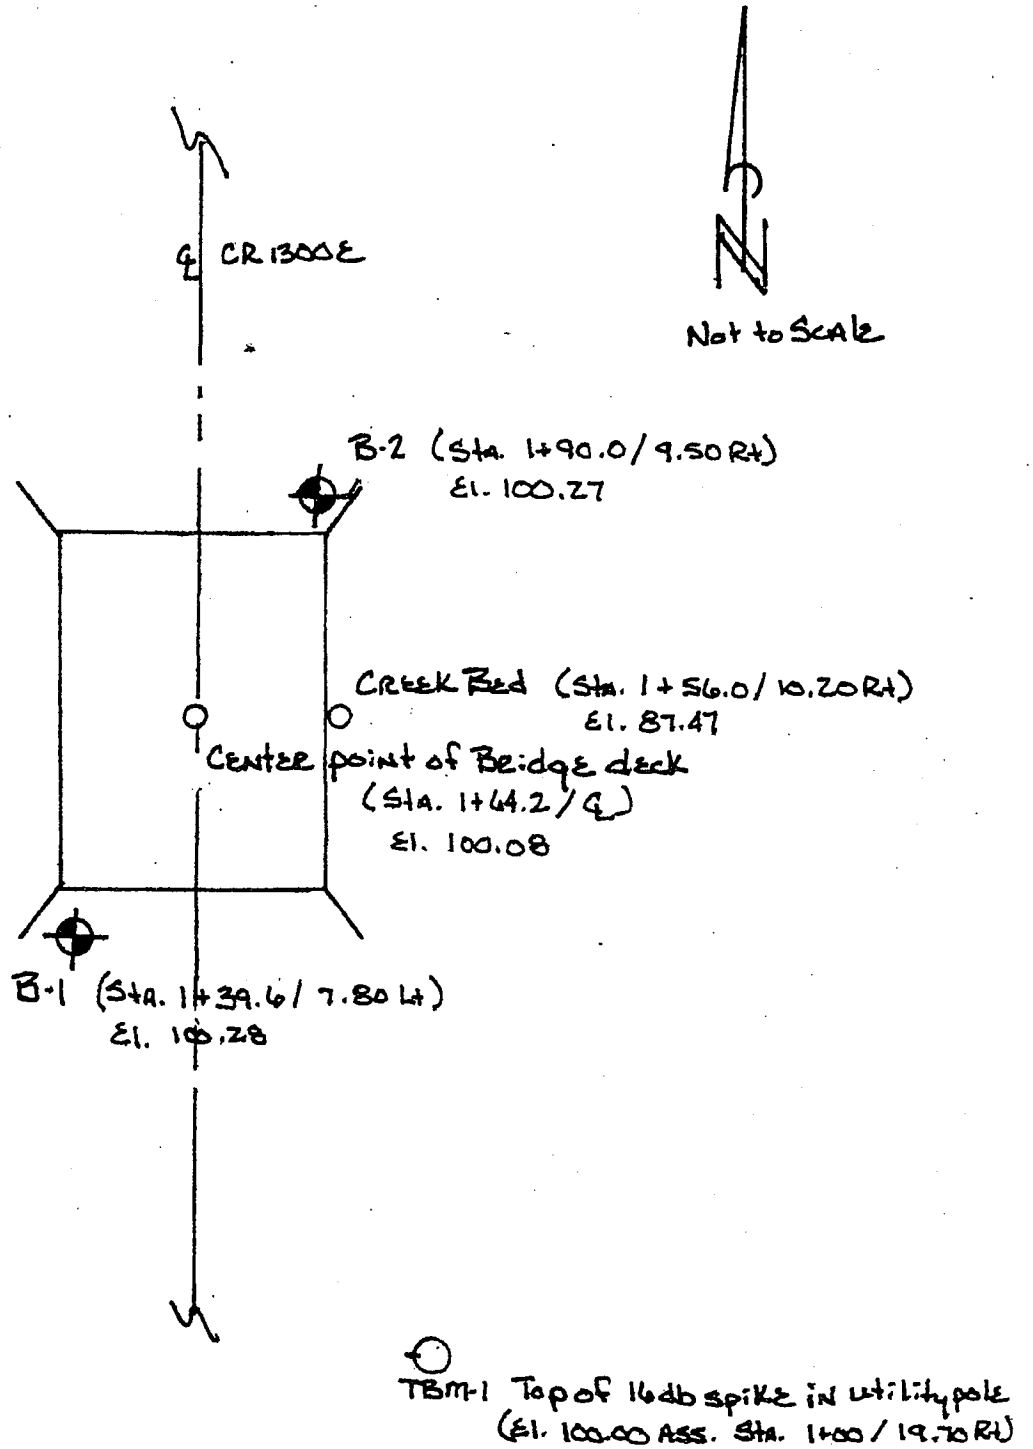 ℄ CR 1300E
N
Not to Scale
B-2 (Sta. 1+90.0/9.50 Rt)
El. 100.27
Creek Bed (Sta. 1+56.0/10.20 Rt)
El. 87.47
Center point of Bridge deck
(Sta. 1+64.2/℄)
El. 100.08
B-1 (Sta. 1+39.6/7.80 Lt)
El. 100.28
TBM-1 Top of 16db spike in utility pole
(El. 100.00 Ass. Sta. 1+00/19.70 Rt)